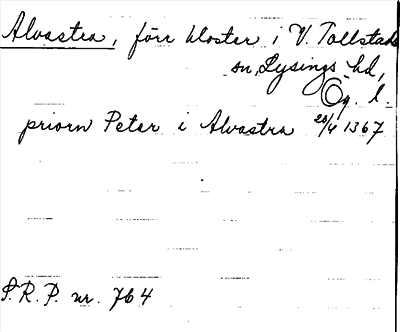 Alvastra, förr kloster i V. Tollstads
sn, Lysings hd,
Ög. l.
priorn Peter i Alvastra 20/4 1367
S.R.P. nr. 764